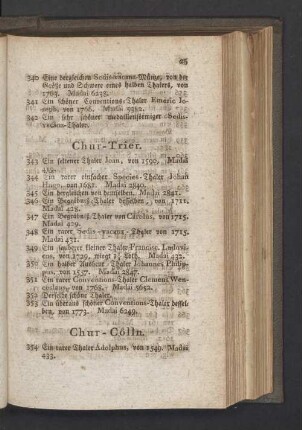 340 Eine dergleichen Sedisvacanz-Münze, von der
Größe und Schwere eines halben Thalers, von
1763. Madai 6238.
341 Ein schöner Conventions-Thaler Emaric Jo-
seph, von 1766. Madai 5982.
342 Ein sehr schöner medaillenförmiger Sedis-
vacanz-Thaler.
Chur-Trier.
343 Ein seltener Thaler Joan, von 1590, Madai
344 Ein rarer einfacher Species-Thaler Johan
Hugo, von Madai 2840.
345 Ein dergleichen von demselben. Madai 2841.
346 Ein Begräbniß-Thaler desselben, von 1711.
Madai 428.
347 Ein Begräbniß-Thaler von Carolus, von 1715.
Madai 429.
348 Ein rarer Sedis-vacanz-Thaler von 1715.
Madai 431.
349 Ein sauberer kleiner Thaler Francisc. Ludovi-
cus, von 1729, wiegt Loth. Madai 432.
350 Ein halber Thaler Johannes Philip-
pus, von 1757. Madai 2847.
351 Ein rarer Conventions-Thaler Clemens Wen-
ceslaus, von 1768. Madai 5652.
352 Derselbe schöne Thaler.
353 Ein überaus schöner Conventions-Thaler dessel-
ben, von 1773. Madai 6249.
Chur-Cölln.
354 Ein rarer Thaler Adolphus, von 1549. Madai
433.